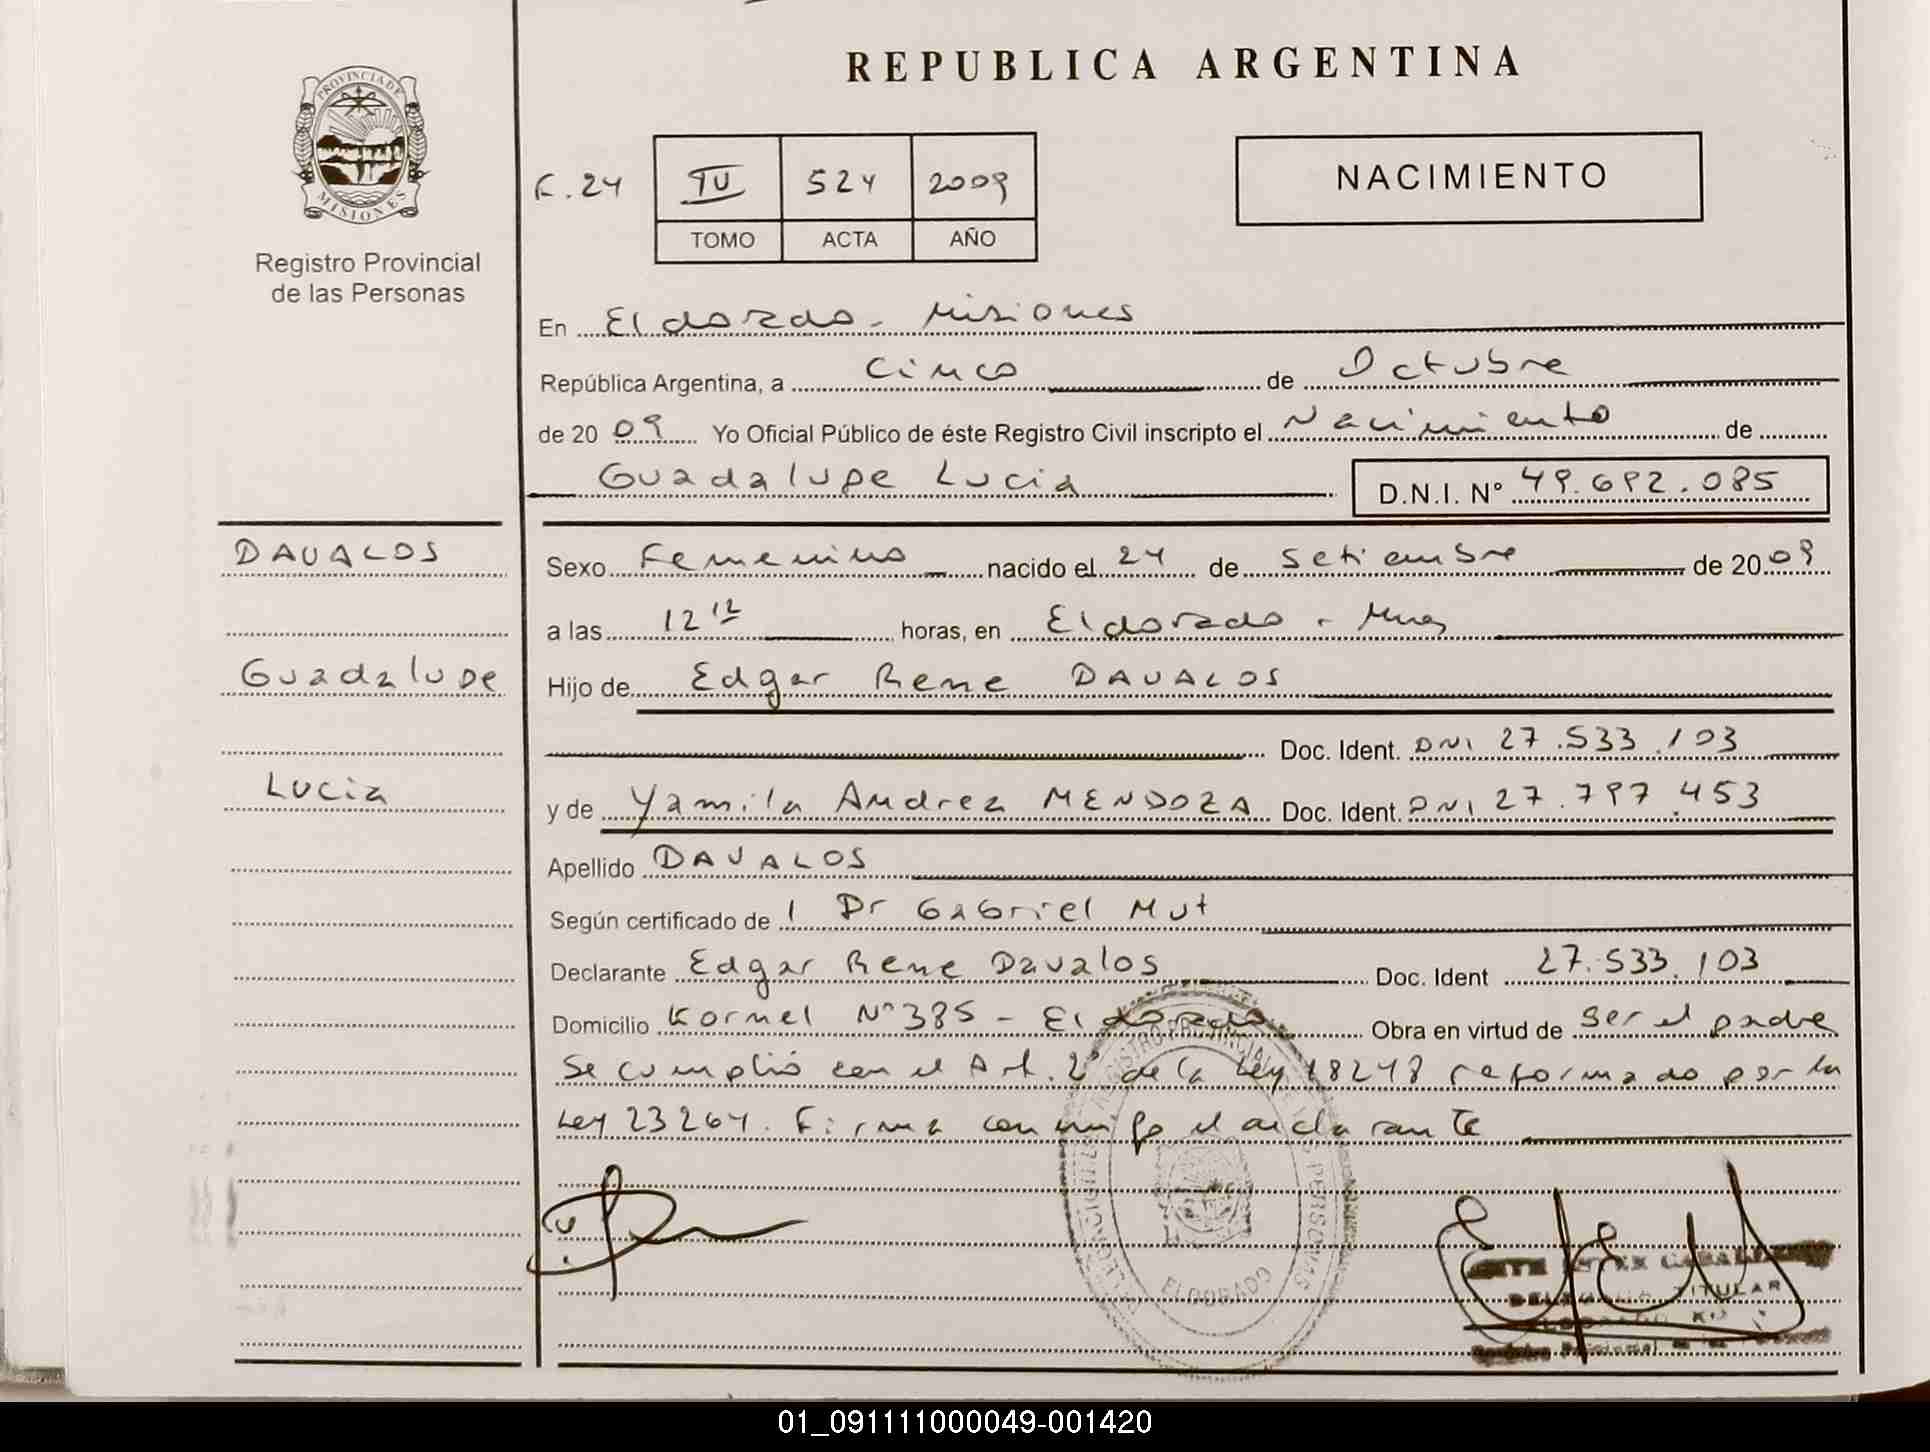 REPUBLICA ARGENTINA
PROVINCIA DE
MISIONES
Registro Provincial
de las Personas
F.24 IV 524 2009
TOMO ACTA AÑO
NACIMIENTO
En Eldorado - Misiones
República Argentina, a Cinco de Octubre
de 2009 Yo Oficial Público de éste Registro Civil inscripto el Nacimiento de
Guadalupe Lucia D.N.I. Nº 49.692.085
DAVALOS
Guadalupe
Lucia
Sexo Femenino nacido el 24 de Setiembre de 2009
a las 12 12 horas, en Eldorado - Mnes
Hijo de Edgar Rene DAVALOS
Doc. Ident. DNI 27.533.103
y de Yamila Andrea MENDOZA Doc. Ident. DNI 27.797.453
Apellido DAVALOS
Según certificado de l Dr Gabriel Mut
Declarante Edgar Rene Davalos Doc. Ident 27.533.103
Domicilio Kornel Nº 385 - Eldorado Obra en virtud de ser el padre
Se cumplió con el Art. 2º de la Ley 18248 reformado por la
Ley 23264. Firma conmigo el declarante
REGISTRO PROVINCIAL DE LAS PERSONAS
ELDORADO
TITULAR
01_091111000049-001420